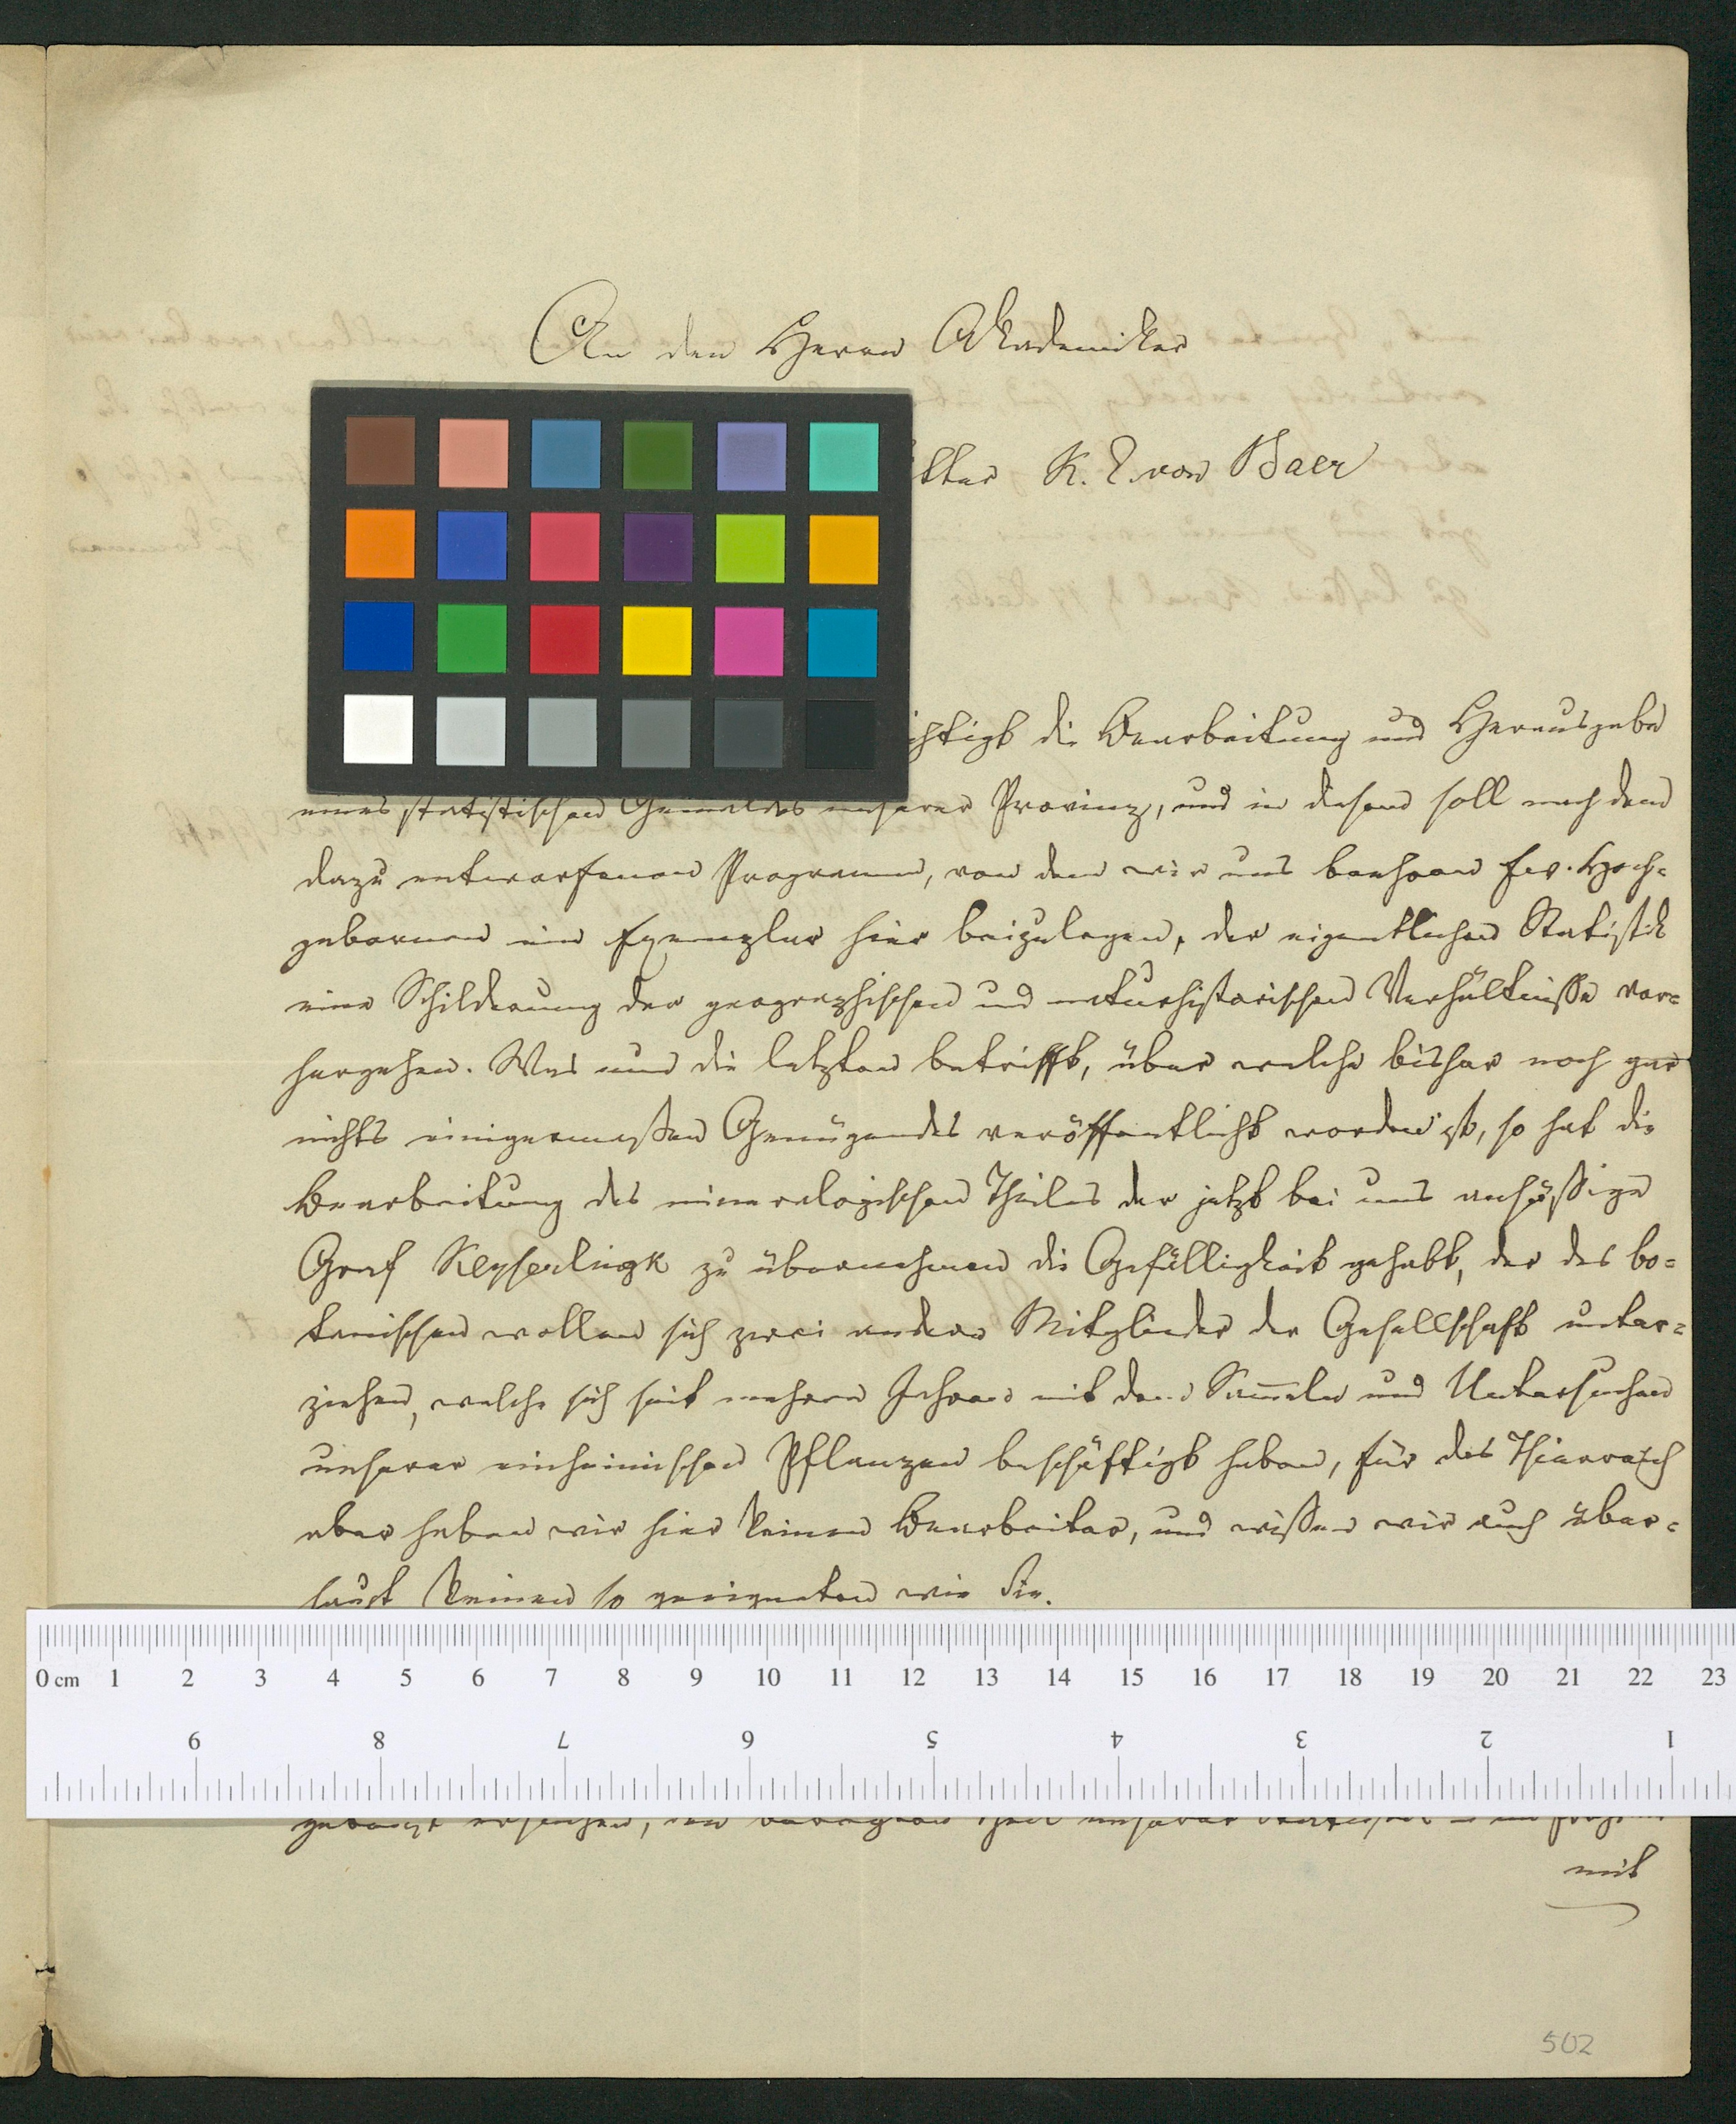 An den Herrn Akademiker
Ritter K. E. von Baer
die Bearbeitung und Herausgabe
eines statistischen Gemäldes unserer Provinz, und in diesem soll nach dem
dazu entworfenen Programm, von dem wir uns beehren Ew. Hoch=
gebornen ein Exemplar hier beizulegen, der eigentlichen Statistik
eine Schilderung der geographischen und naturhistorischen Verhältnisse vor=
hergehen. Was nun die letzten betrifft, über welche bisher noch gar
nichts einigermaßen Genügendes veröffentlicht worden ist, so hat die
Bearbeitung des mineralogischen Theiles der jetzt bei uns ansäßige
Graf Keyserlingk zu übernehmen die Gefälligkeit gehabt, der des bo=
tanischen wollen sich zwei andere Mitglieder der Gesellschaft unter=
ziehen, welche sich seit mehren Jahren mit dem Sam̄eln und Untersuchen
unserer einheimischen Pflanzen beschäftigt haben, für das Thierreich
aber haben wir hier keinen Bearbeiter, und wißen wir auch über=
haupt keinen so geeigneten wie Sie.
0 cm 1 2 3 4 5 6 7 8 9 10 11 12 13 14 15 16 17 18 19 20 21 22 23
9 8 7 6 5 4 3 2 1
mit
502